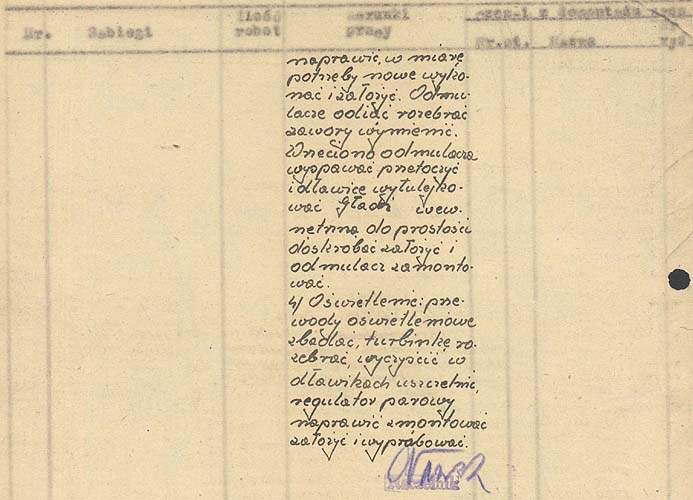 Nr. Zabiegi ilość robot warunki pracy Nr.st. Nazwa
naprawić, w miarę
potrzeby nowe wyko-
nać i założyć. Odmu-
lacze odlać rozebrać
zawory wymienić.
Wrzeciono odmulacza
wyspawać przetoczyć
i dławicę wytulejko-
wać Gładź wew-
nętrzną do prostości
doskrobać założyć i
odmulacz zamonto-
wać.
4) Oświetlenie: prze-
wody oświetleniowe
zbadać, turbinkę ro-
zebrać, wyczyścić w
dławikach uszczelnić,
regulator parowy
naprawić zmontować
założyć i wypróbować.